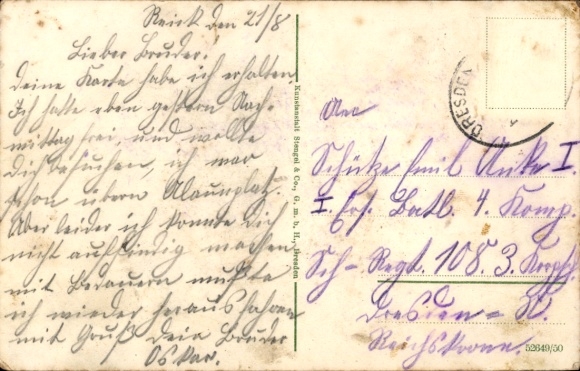 Reick den 21/8
Lieber Bruder.
deine Karte habe ich erhalten
Ich hatte eben gestern Nach-
mittag frei, und wollte
Dich besuchen, ich war
schon übern Alaunplatz.
Aber leider ich konnte Dich
nicht auffindig machen
mit Bedauern mußte
ich wieder herausfahren
mit Gruß dein Bruder
Oskar.
Kunstanstalt Stengel & Co., G. m. b. H., Dresden
DRESDEN
An
Schütze Emil I.
I. Ers. Batl. 4. Komp.
Sch-Regt. 108. 3.
Dresden-N.
Reichskrone.
52649/50